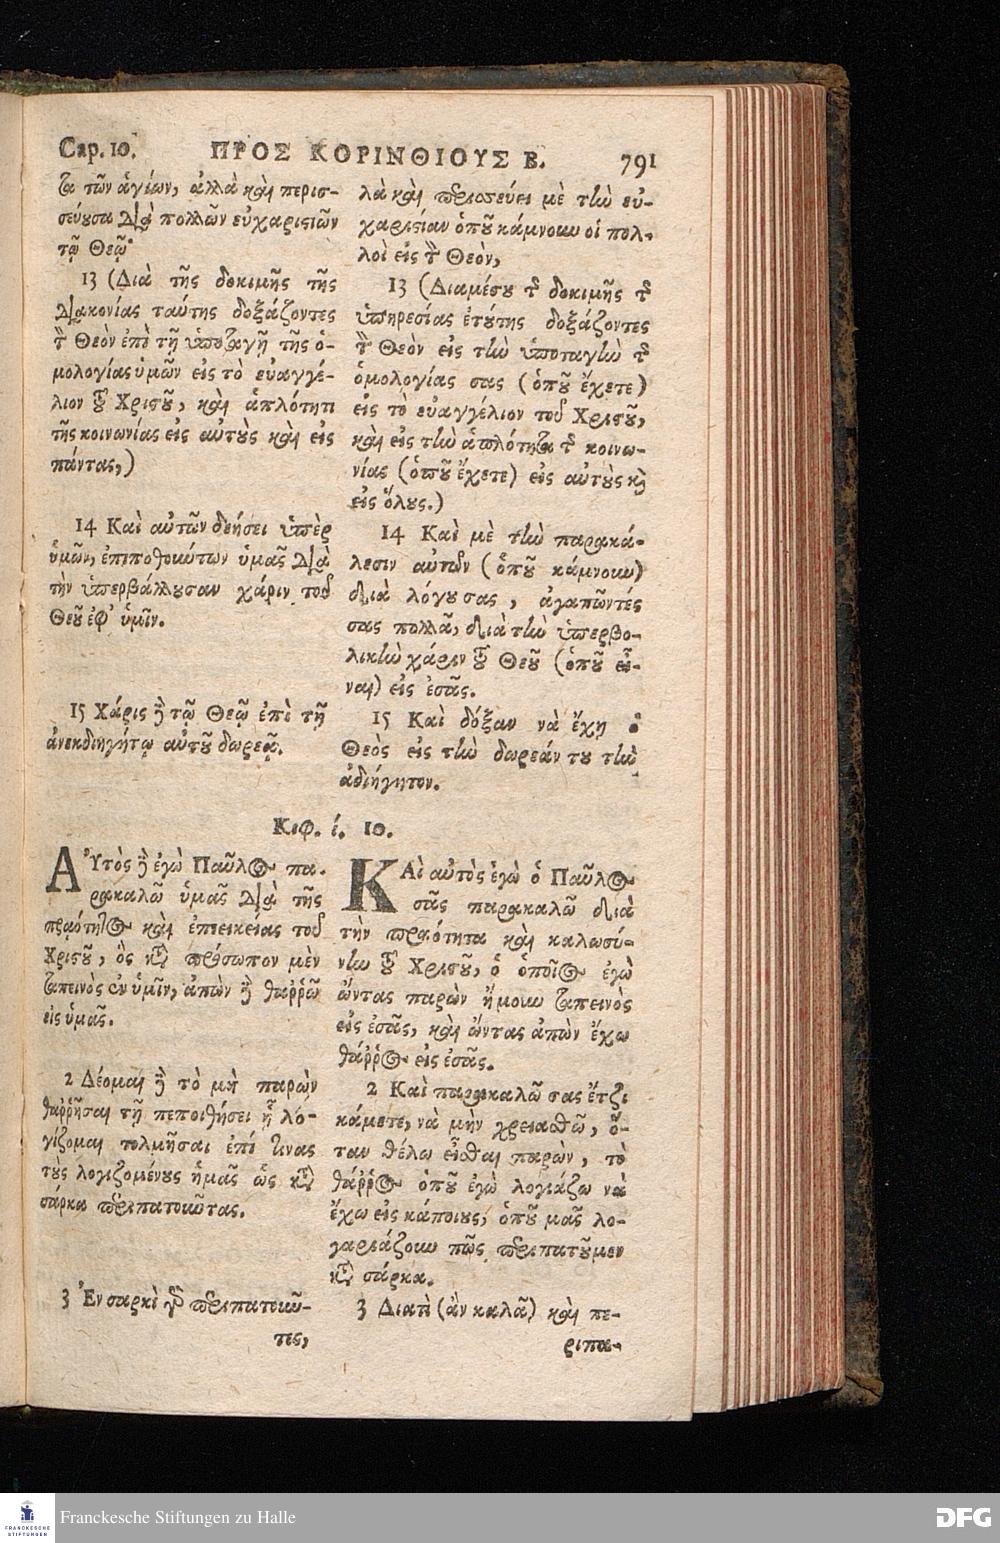 Cap. 10. ΠΡΟΣ ΚΟΡΙΝΘΙΟΥΣ Β. 791
τα τῶν ἁγίων, ἀλλὰ καὶ περισ-
σεύουσα διὰ πολλῶν εὐχαριστιῶν
τῷ Θεῷ·
13 (Διὰ τῆς δοκιμῆς τῆς
διακονίας ταύτης δοξάζοντες
τ Θεὸν ἐπὶ τῇ ὑποταγῇ τῆς ὁ-
μολογίας ὑμῶν εἰς τὸ εὐαγγέ-
λιον τοῦ Χριστοῦ, καὶ ἁπλότητι
τῆς κοινωνίας εἰς αὐτοὺς καὶ εἰς
πάντας,)
14 Καὶ αὐτῶν δεήσει ὑπὲρ
ὑμῶν, ἐπιποθούντων ὑμᾶς διὰ
τὴν ὑπερβάλλουσαν χάριν τοῦ
Θεοῦ ἐφ' ὑμῖν.
15 Χάρις δὲ τῷ Θεῷ ἐπὶ τῇ
ἀνεκδιηγήτῳ αὐτοῦ δωρεᾷ.
λὰ καὶ περισσεύει μὲ τὴν εὐ-
χαριστίαν ὁποῦ κάμνουν οἱ πολ-
λοὶ εἰς τ Θεὸν,
13 (Διαμέσου τ δοκιμῆς τ
ὑπηρεσίας ἐτούτης δοξάζοντες
τ Θεὸν εἰς τὴν ὑποταγὴν τ
ὁμολογίας σας (ὁποῦ ἔχετε)
εἰς τὸ εὐαγγέλιον τοῦ Χριστοῦ,
καὶ εἰς τὴν ἁπλότητα τ κοινω-
νίας (ὁποῦ ἔχετε) εἰς αὐτοὺς κὶ
εἰς ὅλους.)
14 Καὶ μὲ τὴν παρακά-
λεσιν αὐτῶν (ὁποῦ κάμνουν)
διὰ λόγου σας, ἀγαπῶντές
σας πολλὰ, διὰ τὴν ὑπερβο-
λικὴν χάριν τοῦ Θεοῦ (ὁποῦ εἶ-
ναι) εἰς ἐσᾶς.
15 Καὶ δόξαν νὰ ἔχῃ ὁ
Θεὸς εἰς τὴν δωρεάν του τὴν
ἀδιήγητον.
Κεφ. ί. 10.
ΑΥτὸς δὲ ἐγὼ Παῦλος πα-
ρακαλῶ ὑμᾶς διὰ τῆς
πραότητος καὶ ἐπιεικείας τοῦ
Χριστοῦ, ὃς κατὰ πρόσωπον μὲν
ταπεινὸς ἐν ὑμῖν, ἀπὼν δὲ θαῤῥῶ
εἰς ὑμᾶς.
2 Δέομαι δὲ τὸ μὴ παρὼν
θαῤῥῆσαι τῇ πεποιθήσει ᾗ λο-
γίζομαι τολμῆσαι ἐπί τινας
τοὺς λογιζομένους ἡμᾶς ὡς κατὰ
σάρκα περιπατοῦντας.
3 Ἐν σαρκὶ γὰρ περιπατοῦν-
τες,
ΚΑὶ αὐτὸς ἐγὼ ὁ Παῦλος
σᾶς παρακαλῶ διὰ
τὴν πραότητα καὶ καλωσύ-
νην τοῦ Χριστοῦ, ὁ ὁποῖος ἐγὼ
ὤντας παρὼν ἤμουν ταπεινὸς
εἰς ἐσᾶς, καὶ ὤντας ἀπὼν ἔχω
θάῤῥος εἰς ἐσᾶς.
2 Καὶ παρακαλῶ σας ἔτζι
κάμετε, νὰ μὴν χρειασθῶ, ὅ-
ταν θέλω εἶσθαι παρὼν, τὸ
θάῤῥος ὁποῦ ἐγὼ λογιάζω νὰ
ἔχω εἰς κάποιους, ὁποῦ μᾶς λο-
γαριάζουν πῶς περιπατοῦμεν
κατὰ σάρκα.
3 Διατὶ (ἂν καλᾶ) καὶ πε-
ριπα-
Franckesche Stiftungen zu Halle
FRANCKESCHE
STIFTUNGEN
DFG